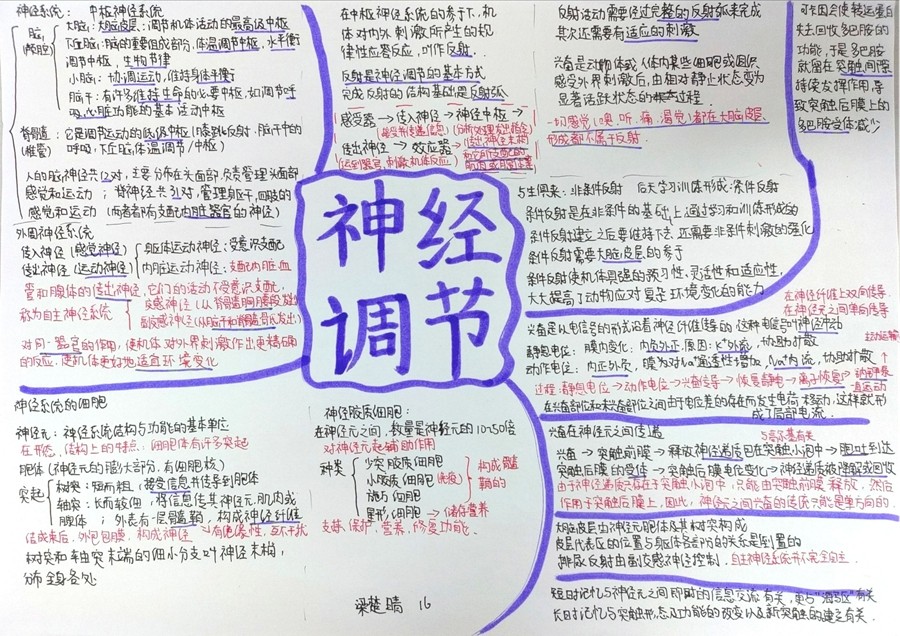 神经系统：中枢神经系统
脑（颅腔）
大脑：大脑皮层：调节机体活动的最高级中枢
下丘脑：脑的重要组成部分，体温调节中枢，水平衡
调节中枢，生物节律
小脑：协调运动，维持身体平衡
脑干：有许多维持生命的必要中枢，如调节呼
吸、心脏功能的基本活动中枢
脊骨遀：它是调节运动的低级中枢（膝跳反射，脑干中的
（椎管）呼吸，下丘脑体温调节/中枢）
人的脑神经共12对，主要分布在头面部，负责管理头面部
感觉和运动；脊神经共31对，管理躯干，四肢的
感觉和运动（两者都有支配内脏器官的神经）
外周神经系统
传入神经（感觉神经）
传出神经（运动神经）
躯体运动神经：受意识支配
内脏运动神经：支配内脏血
管和腺体的传出神经，它们的活动不受意识支配，
称为自主神经系统
交感神经（从脊髓胸腰段发出
副交感神经（从脑干和脊髓骶段发出）
对同一器官的作用，使机体对外界刺激作出更精确
的反应，使机体更好地适应环境变化
在中枢神经系统的参与下，机
体对内外刺激所产生的规
律性应答反应，叫作反射．
反射是神经调节的基本方式
完成反射的结构基础是反射弧
感受器→传入神经→神经中枢→
传出神经→效应器
反射活动需要经过完整的反射弧来完成
其次还需要有适应的刺激
兴奋是动物体或人体内某些细胞或组织
感受外界刺激后，由相对静止状态变为
显著活跃状态的过程
一切感觉（嗅，听，痛，渴觉）都在大脑皮层，
形成都不属于反射．
可卡因会使转运蛋白
失去回收多巴胺的
功能，于是多巴胺
就留在突触间隙
持续发挥作用，导
致突触后膜上的
多巴胺受体减少
神经
调节
与生俱来：非条件反射 后天学习训练形成：条件反射
条件反射是在非条件的基础上通过学习和训练形成的
条件反射建立之后要维持下去还需要非条件刺激的强化
条件反射需要大脑皮层的参于
条件反射使机体具强的预习性、灵活性和适应性，
大大提高了动物应对复杂环境变化的能力
在神经纤维上双向传导
在神经元之间单向传导
兴奋是以电信号的形式沿着神经纤维传导的，这种电信号叫神经冲动
静息电位：膜内变化：内负外正，原因：K⁺外流，协助扩散
动作电位：内正外负，膜为对Na⁺通透性增加，Na⁺内流，协助扩散
过程：静息电位→动作电位→兴奋传导→恢复静电→离子恢复→钠钾泵
一直运动
在兴奋部位和未兴奋部位之间由于电位差的存在而发生电荷移动，这样就形
成了局部电流．
兴奋在神经元之间传递
兴奋→突触前膜→释放神经递质包在突触小泡中→胞吐到达
突触后膜的受体→突触后膜电位变化→神经递质被降解或回收
由于神经递质只存在于突触小泡中，只能由突触前膜释放，然后
作用于突触后膜上，因此，神经元之间兴奋的传递只能是单方向的
大脑皮层由神经元胞体及其树突构成
皮层代表区的位置与躯体各部分的关系是倒置的
排尿反射由副交感神经控制，自主神经系统并不完全自主
短时记忆与神经元之间即时的信息交流有关，更与“海马区”有关
长时记忆与突触形态及功能的改变以及新突触的建立有关．
神经系统的细胞
神经元：神经系统结构与功能的基本单位
在形态、结构上的特点：细胞体有许多突起
胞体（神经元的膨大部分，有细胞核）
突起
树突：短而粗，接受信息并传导到胞体
轴突：长而较细，将信息传其神经元，肌肉或
腺体；外表有一层骨髓鞘，构成神经纤维
集成束后，外包包膜，构成神经→有绝缘性，互不干扰
树突和轴突末端的细小分支叫神经末梢，
分布全身各处
神经胶质细胞：
在神经元之间，数量是神经元的10~50倍
对神经元起辅助作用
种类
少突胶质细胞
小胶质细胞（免疫）
施旺细胞
星形细胞→储存营养
构成髓
鞘的
支持、保护、营养、修复功能．
梁楚晴 16